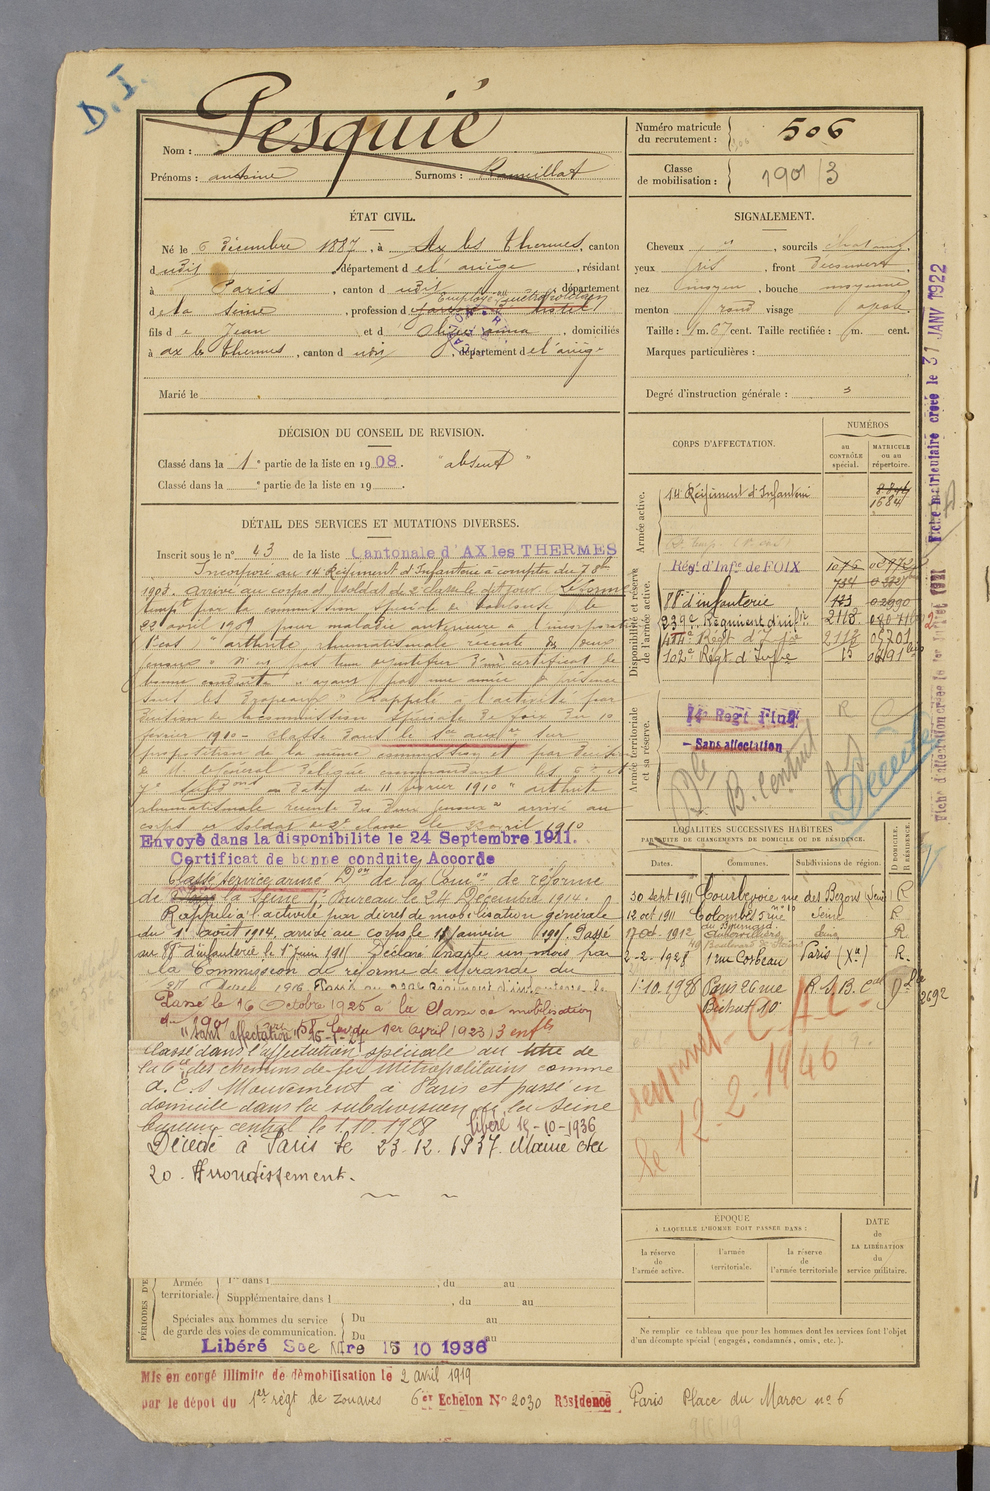 D.I.
Pesquié
Nom :
Prénoms : antoine Surnoms : Ramillat
Numéro matricule du recrutement : 506
Classe de mobilisation : 1901/3
ÉTAT CIVIL.
Né le 6 Décembre 1887, à Ax les thermes, canton
d udit, département d e l'ariège, résidant
à Paris, canton d udit, département
d e la Seine, profession d Employé au métropolitain
fils d e Jean et d anna, domiciliés
à ax les thermes, canton d udit, département d e l'ariège
Marié le
SIGNALEMENT.
Cheveux, sourcils chatains,
yeux gris, front découvert,
nez moyen, bouche moyenne,
menton rond visage ovale.
Taille : 1 m. 67 cent. Taille rectifiée : m. cent.
Marques particulières :
Degré d'instruction générale : 3
DÉCISION DU CONSEIL DE REVISION.
Classé dans la 1e partie de la liste en 1908. "absent"
Classé dans la e partie de la liste en 19
DÉTAIL DES SERVICES ET MUTATIONS DIVERSES.
Inscrit sous le n° 43 de la liste Cantonale d'AX les THERMES
Incorporé au 14 Régiment d'Infanterie à compter du 7 8bre
1908. arrivé au corps et soldat de 2e classe le dit jour. Réformé
tempre par la commission spéciale de toulouse le
22 avril 1909 pour maladie antérieure à l'incorporation
"arthrite rhumatismale récente des deux
genoux" N'a pas lieu de justifier d'un certificat de
bonne conduite "ayant pas une année de présence
sous les drapeaux" Rappelé à l'activité par
décision de la commission spéciale de foix du 10
février 1910 - classé dans le Sce auxre sur
proposition de la même commission et par décision
de M. le Général Délégué commandant les 6e et
7e Subdons en date du 11 février 1910 "arthrite
rhumatismale récente des deux genoux" arrivé au
corps et soldat de 2e classe le avril 1910
Envoyé dans la disponibilite le 24 Septembre 1911.
Certificat de bonne conduite Accordé
Classé service armé Don de la Comon de réforme
de la Seine 4e Bureau le 24 Décembre 1914.
Rappelé à l'activité par décret de mobilisation générale
du 1 août 1914, arrivé au corps le 18 Janvier 1915. Passé
au 88 d'infanterie le 1er Juin 1915 Déclaré inapte un mois par
la Commission de réforme de Mirande du
Passé le 16 Octobre 1925 à la Classe de mobilisation
de 1901
"sant affectation" Loi du 1er Avril 1923) 3 enfts
Classé dans l'affectation spéciale au titre de
la Cie des chemins de fer Métropolitains comme
A.E.S Mouvement à Paris et passé en
domicile dans la subdivision de la Seine
bureau central le 1.10.1928 libéré 15-10-1936
Décédé à Paris le 23.12.1937. Mairie du
20. Arrondissement.
CORPS D'AFFECTATION.
NUMÉROS
au CONTRÔLE spécial.
MATRICULE ou au répertoire.
Armée active.
14 Régiment d'Infanterie 8896
1684
Disponibilité et réserve de l'armée active.
Régt d'Infie de FOIX 1076
734
88e d'infanterie 123 02990
239e Régiment d'infie 2118
Régt d'Infie 2118 06701
102e Régt d'Infie 15
Armée territoriale et sa réserve.
14e Régt d'Inf
- Sans affectation
R C
B. Central
Décédé
LOCALITÉS SUCCESSIVES HABITÉES
PAR SUITE DE CHANGEMENTS DE DOMICILE OU DE RÉSIDENCE.
Dates. Communes. Subdivisions de région. D DOMICILE. R RÉSIDENCE.
30 sept 1911 Courbevoie rue des Bezons Seine R
12 oct 1911 Colombes 5 rue Seine R.
17 Oct. 1912 Aubervilliers Seine R.
2-2-1928 1 rue Corbeau Paris (Xe) R.
1.10.1928 Paris 26 rue R.S.B. Cal D
Bichat 10e
2692
C-A-L-
le 12-2-1946
ÉPOQUE
A LAQUELLE L'HOMME DOIT PASSER DANS :
la réserve de l'armée active.
l'armée territoriale.
la réserve de l'armée territoriale
DATE de LA LIBÉRATION du service militaire.
Ne remplir ce tableau que pour les hommes dont les services font l'objet
d'un décompte spécial (engagés, condamnés, omis, etc.).
PÉRIODES D'E
Armée territoriale. 1re dans l , du au
Supplémentaire dans l , du au
Spéciales aux hommes du service de garde des voies de communication. Du au
Du au
Libéré Sce Mre 15 10 1936
Mis en congé illimité de démobilisation le 2 avril 1919
par le dépot du 1er régt de zouaves 6e Echelon N° 2030 Résidence Paris Place du Maroc n° 6
Fiche matriculaire créée le 31 JANV 1922